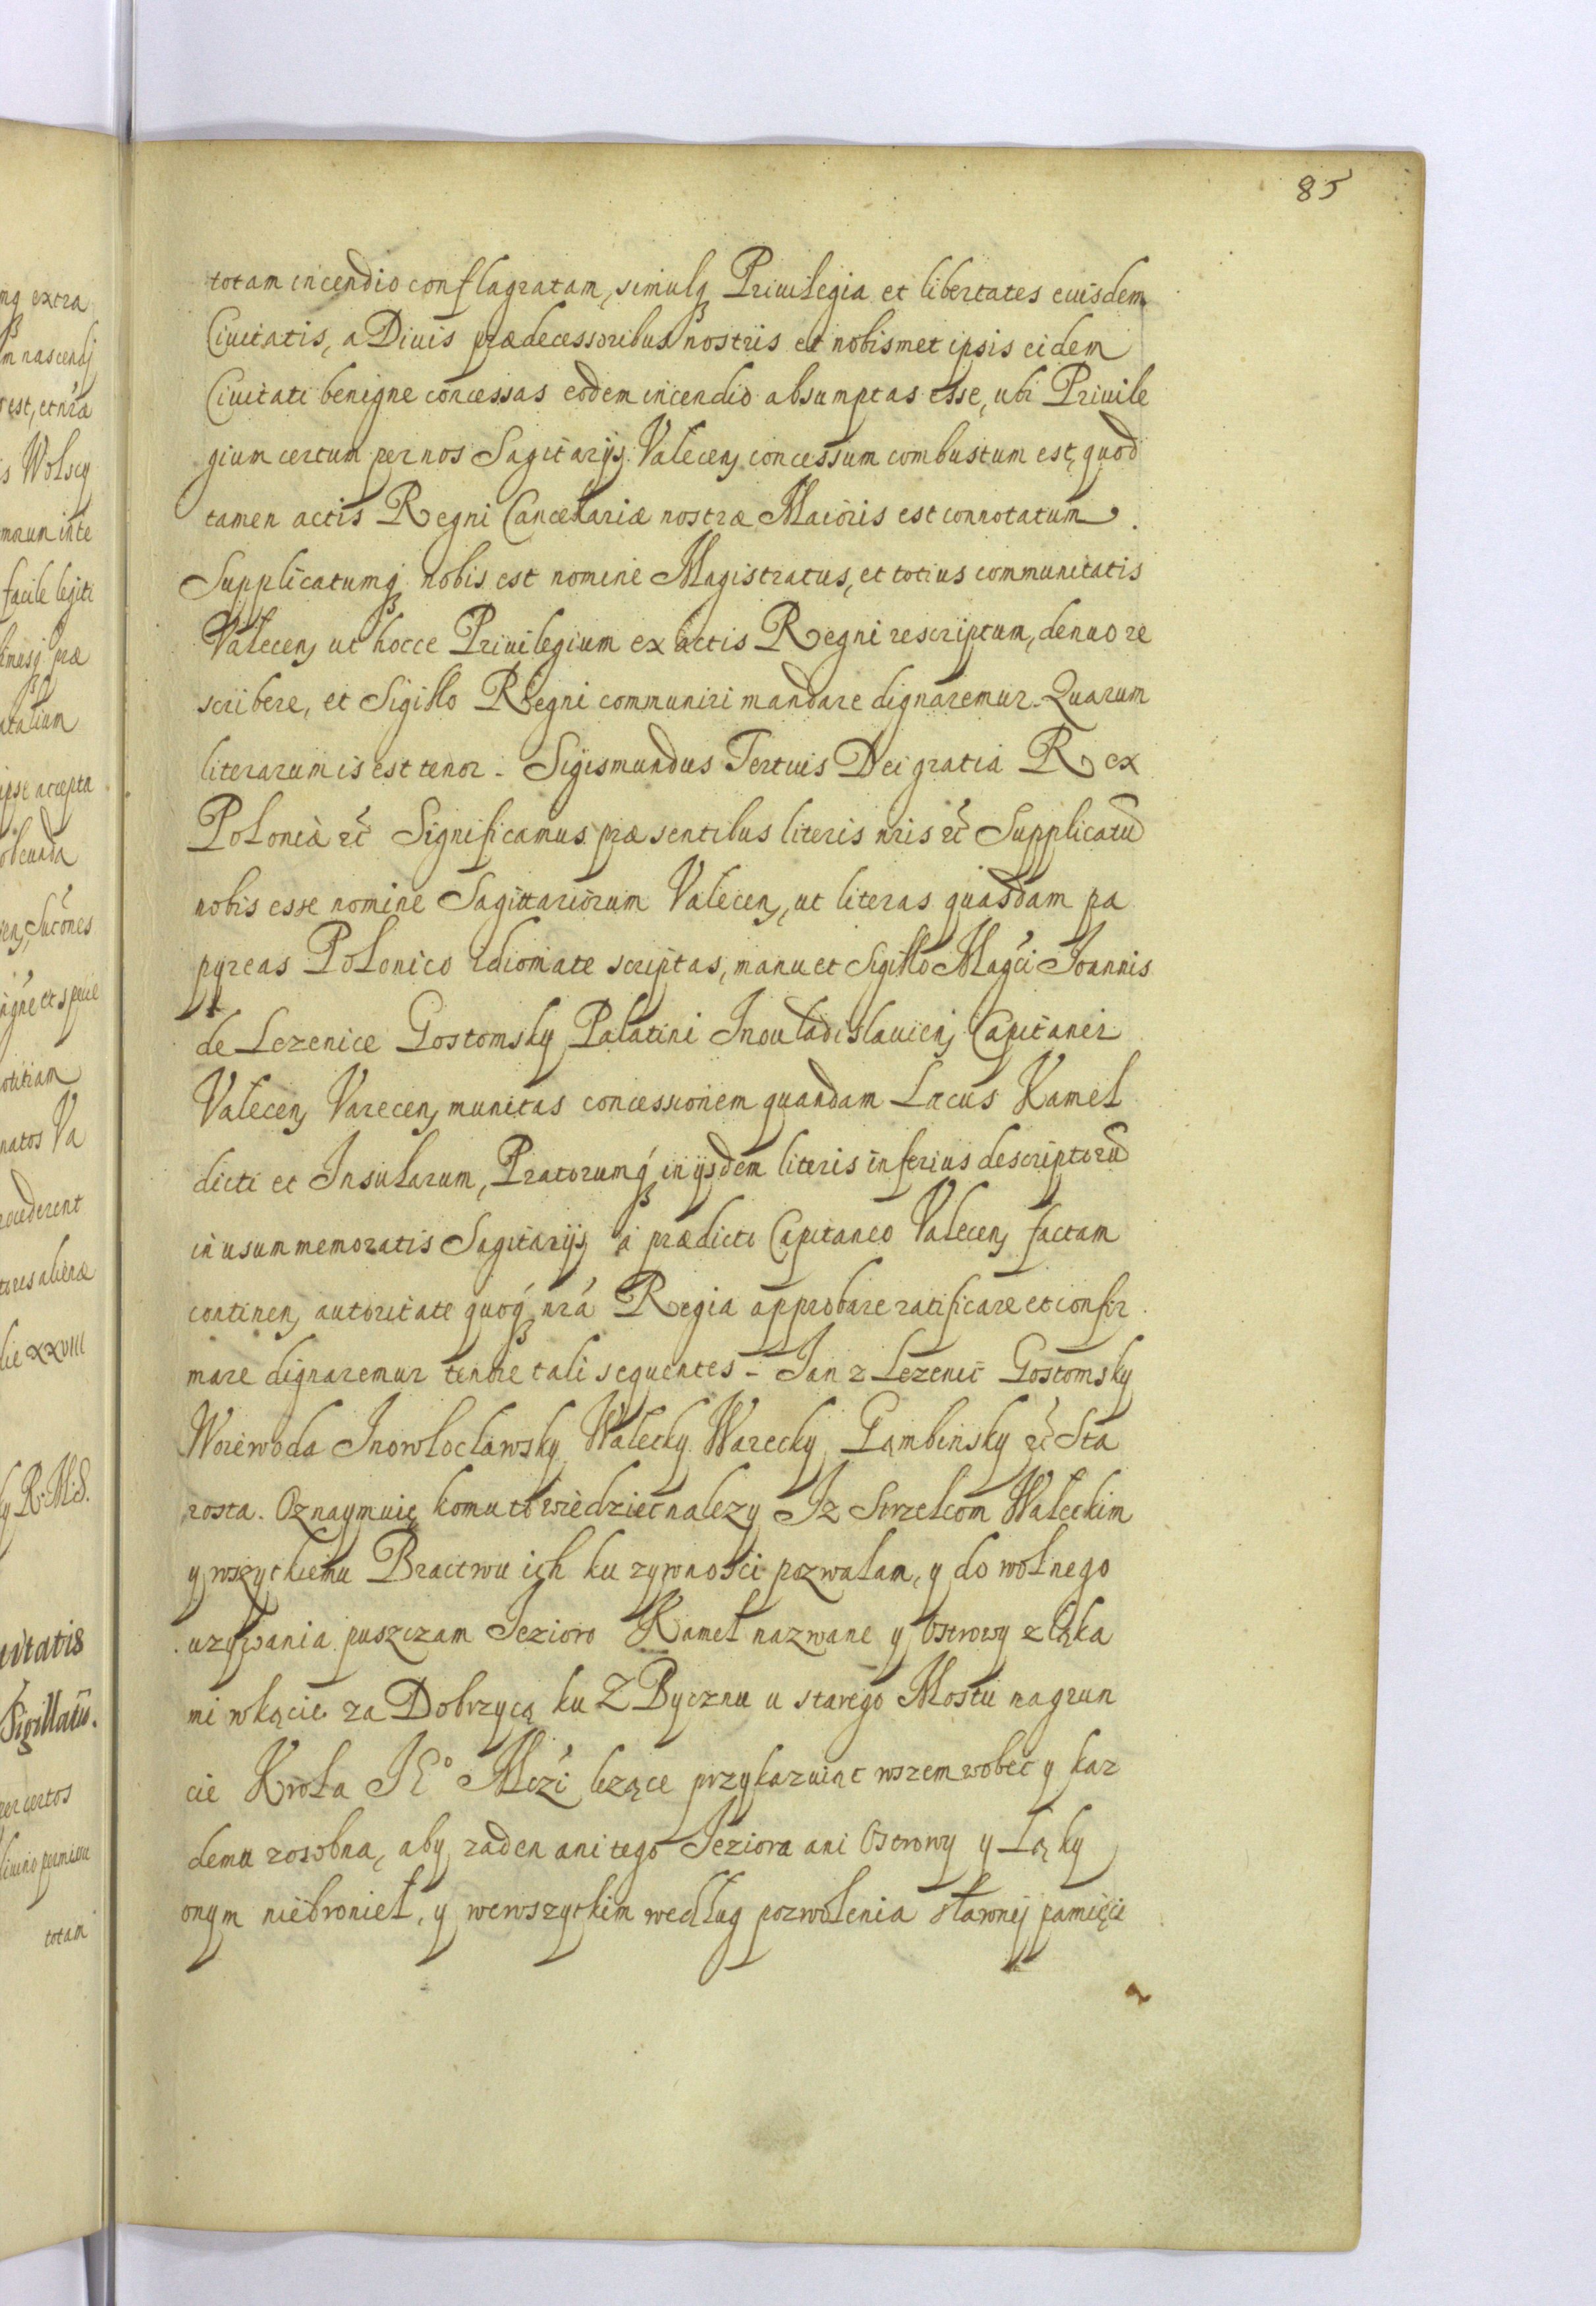 85
totam incendio conflagratam, simulq Priuilegia et libertates euisdem
Ciuitatis, a Diuis prædecessoribus nostris et nobismet ipsis eidem
Ciuitati benigne concessas eodem incendio absumptas esse, ubi Priuile
gium certum per nos Sagitarijs Valecen, concessum combustum est, quod
tamen actis Regni Cancellariæ nostræ Maioris est connotatum.
Supplicatumq nobis est nomine Magistratus, et totius communitatis
Valecen, ut hocce Priuilegium ex actis Regni rescriptum, denuo re
scribere, et Sigillo Regni communiri mandare dignaremur. Quarum
literarum is est tenor. Sigismundus Tertius Dei gratia Rex
Poloniæ etc Significamus præsentibus literis nris etc Supplicatū
nobis esse nomine Sagittariorum Valecen, ut literas quasdam pa
pyreas Polonico idiomate scriptas, manu et Sigillo Magci Joannis
de Lezenice Gostomsky Palatini Inouladislauien, Capitanei
Valecen, Varecen, munitas concessionem quandam Lacus Kamel
dicti et Insularum, Pratorumq in ijsdem literis inferius descriptorū
in usum memoratis Sagitarijs, a prædicto Capitaneo Valecen, factam
continen, autoritate quoq nra Regia approbare ratificare et confir
mare dignaremur tenore tali sequentes - Jan z Lezenic Gostomsky
Woiewoda Inowloclawsky Walecky Warecky Gąmbinsky etc Sta
rosta. Oznaymuię komu to wiedziec nalezy Iz Strzelcom Waleckim
y wszytkiemu Bractwu ich ku zywnosci pozwalam, y do wolnego
uzywania puszczam Iezioro Kamel nazwane y Ostrowy z łąka
mi w kącie za Dobrzycą ku Z Bycznu u starego Mostu na grun
cie Krola JEo Mczi lezące przykazuiąc wszem wobec y kaz
demu zosobna, aby zaden ani tego Ieziora ani Ostrowy y Łąky
onym niebroniel, y wewszytkim według pozwolenia sławnej pamięci